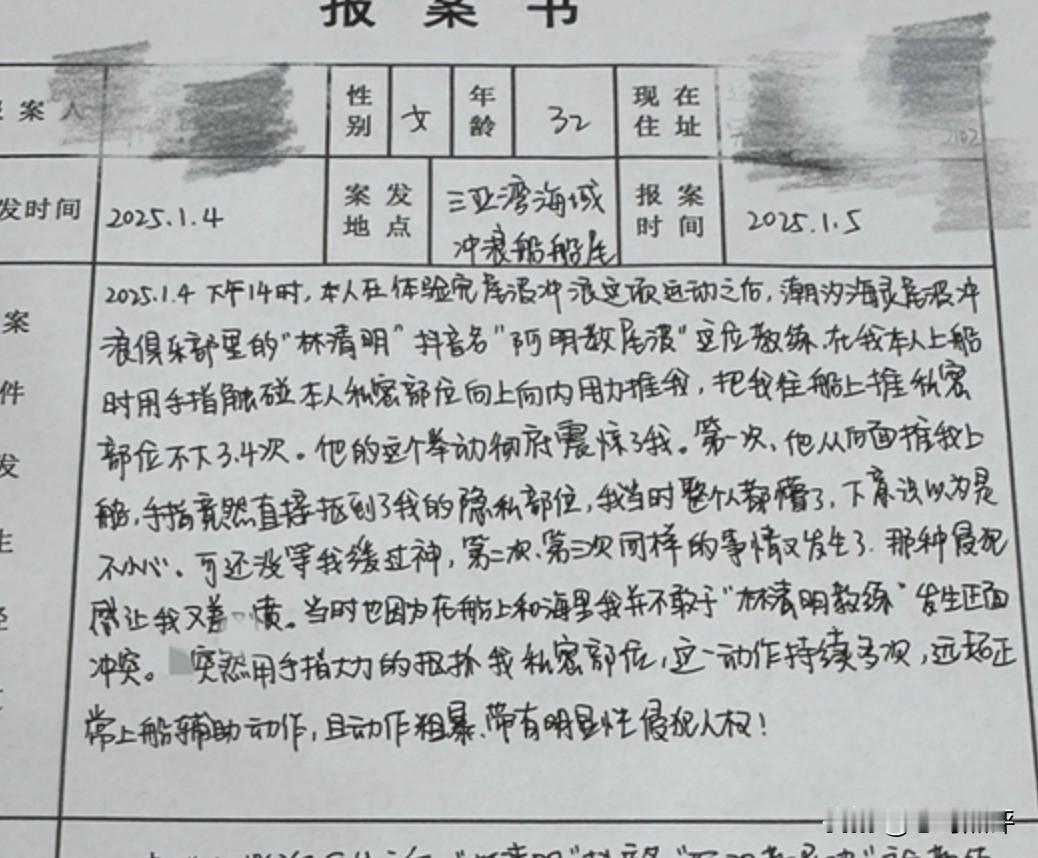 报案书
案人 性别 女 年龄 32 现在住址
发时间 2025.1.4 案发地点 三亚湾海域冲浪船船尾 报案时间 2025.1.5
案件发生
2025.1.4 下午14时,本人在体验完尾波冲浪这项运动之后,潮汐海灵尾波冲
浪俱乐部里的“林清明”抖音名“阿明教尾波”这位教练.在我本人上船
时用手指触碰本人私密部位向上向内用力推我,把我往船上推私密
部位不下3.4次。他的这个举动彻底震惊了我。第一次,他从后面推我上
船,手指竟然直接抠到了我的隐私部位,我当时整个人都懵了,下意识以为是
不小心.可还没等我缓过神,第二次.第三次同样的事情又发生了.那种侵犯
感让我又羞 愤。当时也因为在船上和海里我并不敢于“林清明教练”发生正面
冲突。 突然用手指大力的抠 我私密部位,这一动作持续多次,远超正
常上船辅助动作,且动作粗暴.带有明显性侵犯人权!